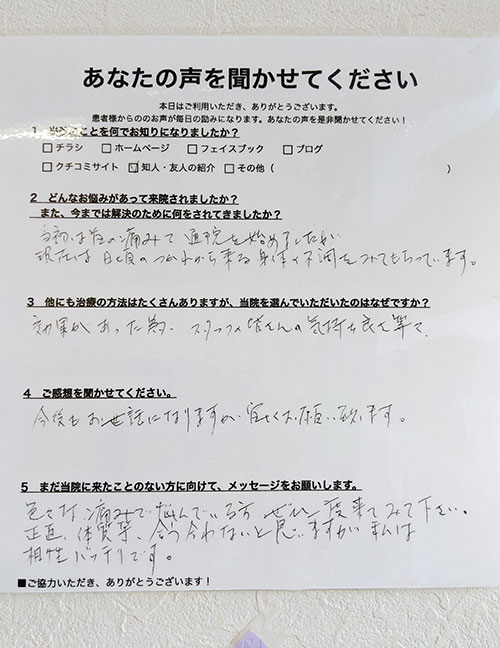 あなたの声を聞かせてください
本日はご利用いただき、ありがとうございます。
患者様からののお声が毎日の励みになります。あなたの声を是非聞かせてください！
1 当院のことを何でお知りになりましたか？
□ チラシ □ ホームページ □ フェイスブック □ ブログ
□ クチコミサイト ☑ 知人・友人の紹介 □ その他（ ）
2 どんなお悩みがあって来院されましたか？
また、今までは解決のために何をされてきましたか？
当初は首の痛みで通院を始めましたが
現在は日頃のつかれから来る身体の不調をみてもらっています。
3 他にも治療の方法はたくさんありますが、当院を選んでいただいたのはなぜですか？
効果があった為、スタッフの皆さんの気持ち良さ等々、
4 ご感想を聞かせてください。
今後もお世話になりますが、宜しくお願い致します。
5 まだ当院に来たことのない方に向けて、メッセージをお願いします。
色々な痛みで悩んでいる方 ぜひ一度来てみて下さい。
正直、体質等、合う合わないと思いますが 私は
相性バッチリです。
■ご協力いただき、ありがとうございます！